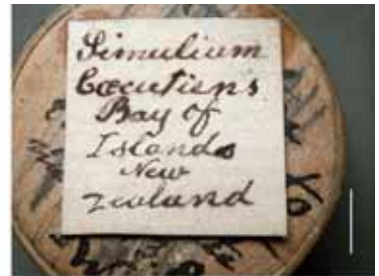 Simulium
Cœcutiens
Bay of
Islands
New
Zealand